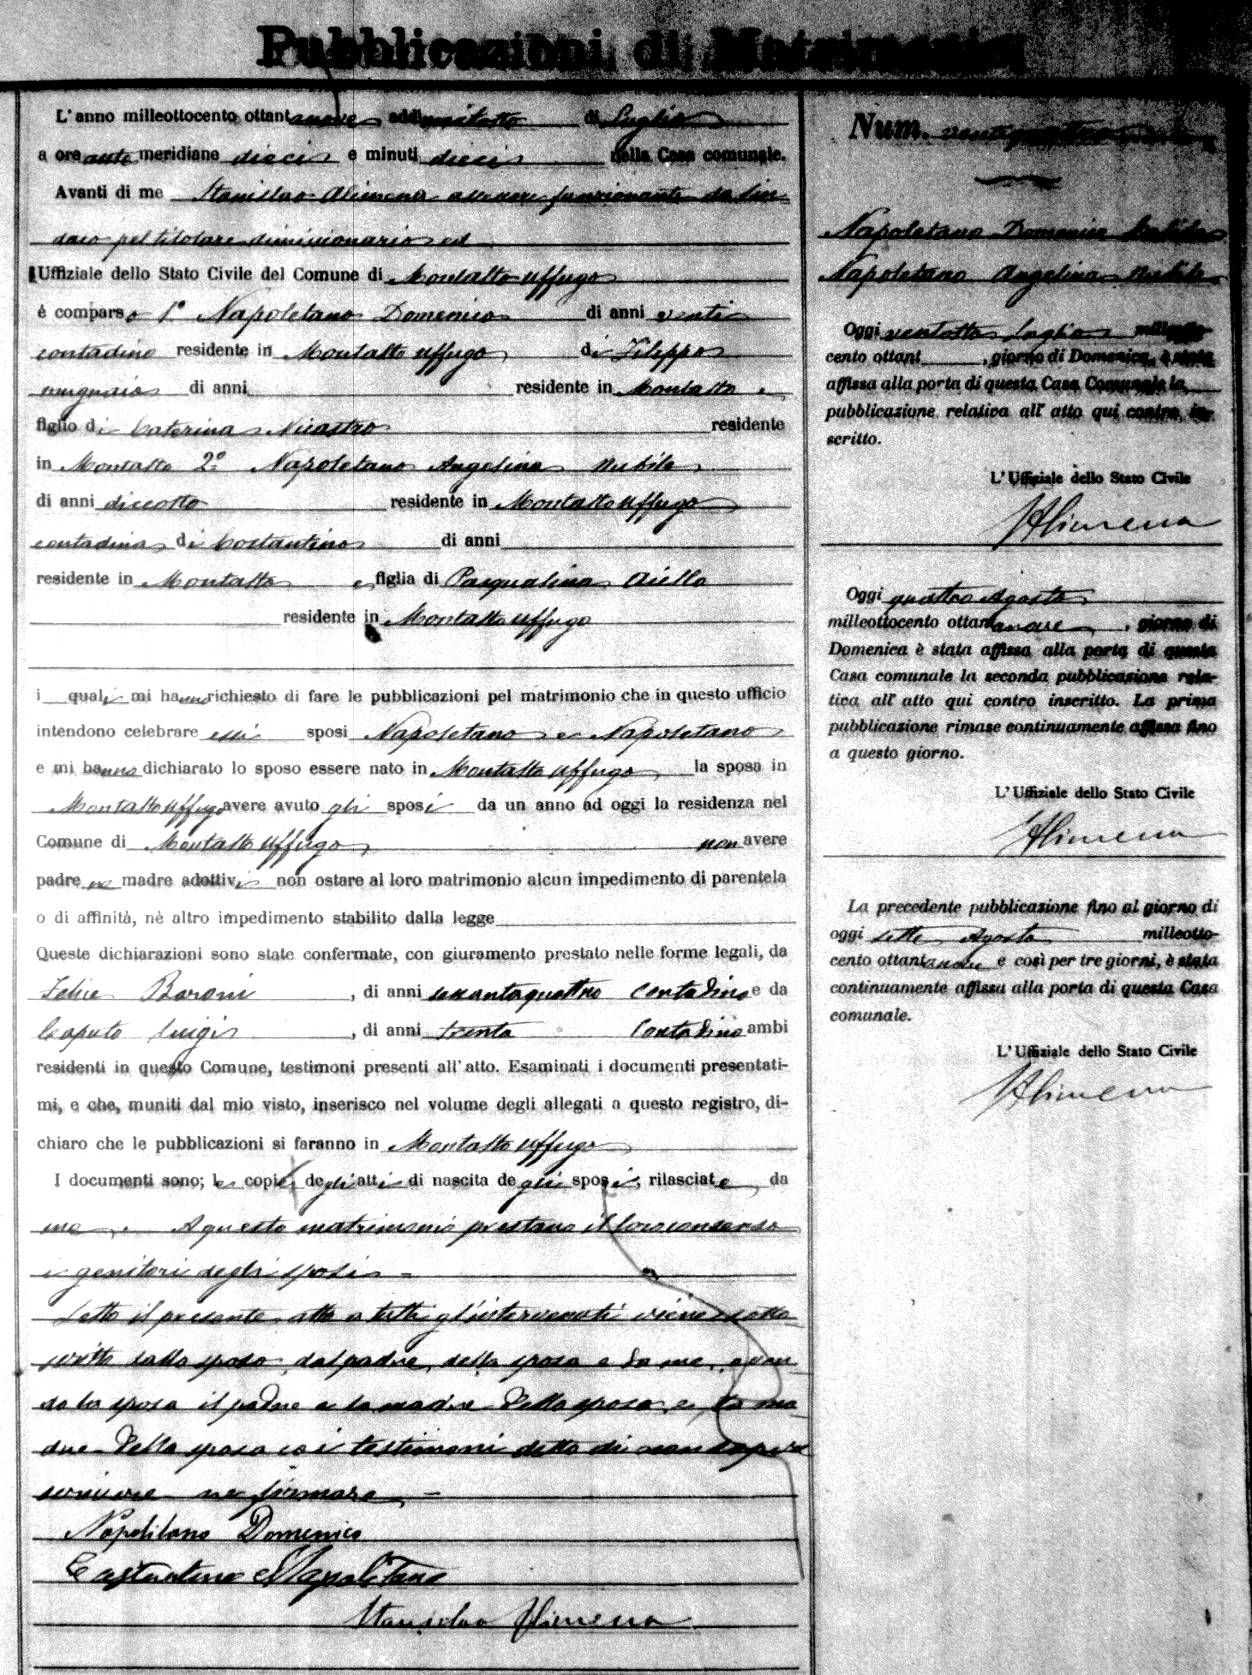 Pubblicazioni di Matrimonio
L'anno milleottocento ottantanove, addì ventotto di Luglio
a ore ante meridiane dieci e minuti dieci nella Casa comunale.
Avanti di me Stanislao Alimena assessore funzionante da sin
daco pel titolare dimissionario ed
Uffiziale dello Stato Civile del Comune di Montalto Uffugo
è comparso 1º Napoletano Domenico di anni venti
contadino residente in Montalto Uffugo, di Filippo
mugnaio di anni residente in Montalto e
figlio di Caterina Nicastro residente
in Montalto 2º Napoletano Angelina nubile
di anni diciotto residente in Montalto Uffugo
contadina di Costantino di anni
residente in Montalto e figlia di Pasqualina Aiello
residente in Montalto Uffugo
i quali mi hanno richiesto di fare le pubblicazioni pel matrimonio che in questo ufficio
intendono celebrare essi sposi Napoletano e Napoletano
e mi hanno dichiarato lo sposo essere nato in Montalto Uffugo, la sposa in
Montalto Uffugo avere avuto gli sposi da un anno ad oggi la residenza nel
Comune di Montalto Uffugo, non avere
padre nè madre adottivi non ostare al loro matrimonio alcun impedimento di parentela
o di affinità, nè altro impedimento stabilito dalla legge
Queste dichiarazioni sono state confermate, con giuramento prestato nelle forme legali, da
Felice Baroni, di anni sessantaquattro contadino e da
Caputo Luigi, di anni trenta contadino ambi
residenti in questo Comune, testimoni presenti all'atto. Esaminati i documenti presentati-
mi, e che, muniti dal mio visto, inserisco nel volume degli allegati a questo registro, di-
chiaro che le pubblicazioni si faranno in Montalto Uffugo
I documenti sono; le copie degli atti di nascita degli sposi, rilasciate da
me. A questo matrimonio prestano il loro consenso
i genitori degli sposi -
Letto il presente atto a tutti gl'intervenuti viene sotto
scritto dallo sposo, dal padre della sposa e da me, aven
do la sposa il padre e la madre dello sposo, e la ma
dre della sposa co i testimoni detto di non sapere
scrivere nè firmare -
Napolitano Domenico
Costantino Napolitano
Stanislao Alimena
Num. ventiquattro
Napoletano Domenico
Napoletano Angelina nubile
Oggi ventotto Luglio milleotto-
cento ottant , giorno di Domenica, è stata
affissa alla porta di questa Casa Comunale la
pubblicazione relativa all'atto qui contro in-
scritto.
L'Uffiziale dello Stato Civile
SAlimena
Oggi quattro Agosto
milleottocento ottantanove, giorno di
Domenica è stata affissa alla porta di questa
Casa comunale la seconda pubblicazione rela-
tiva all'atto qui contro inscritto. La prima
pubblicazione rimase continuamente affissa fino
a questo giorno.
L'Uffiziale dello Stato Civile
SAlimena
La precedente pubblicazione fino al giorno di
oggi sette Agosto milleotto-
cento ottantanove e così per tre giorni, è stata
continuamente affissa alla porta di questa Casa
comunale.
L'Uffiziale dello Stato Civile
SAlimena